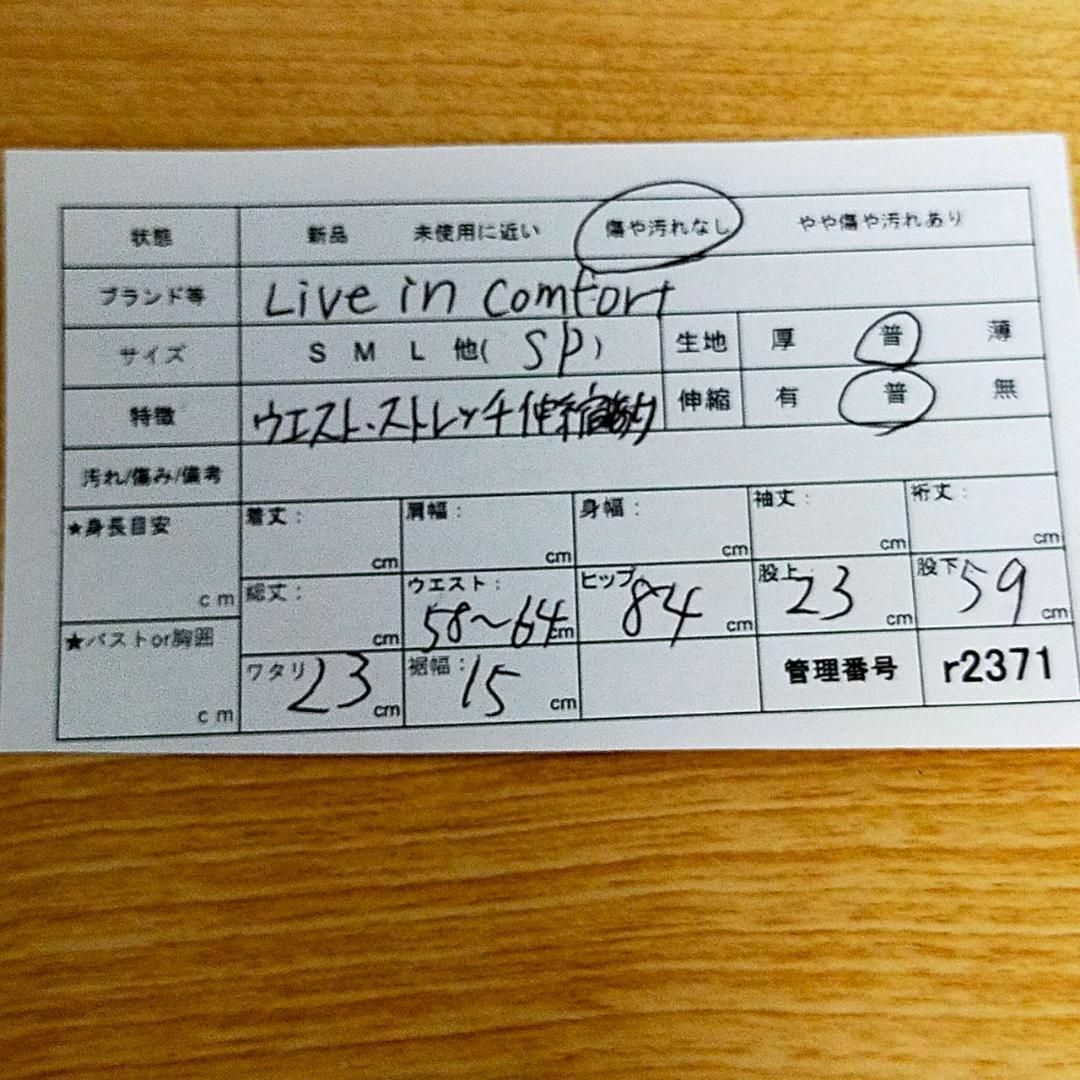 状態 新品 未使用に近い 傷や汚れなし やや傷や汚れあり
ブランド等 Live in comfort
サイズ S M L 他( SP ) 生地 厚 普 薄
特徴 ウエスト、ストレッチ伸縮あり 伸縮 有 普 無
汚れ/傷み/備考
★身長目安 cm 着丈: cm 肩幅: cm 身幅: cm 袖丈: cm 裄丈: cm
総丈: cm ウエスト: 58~64 cm ヒップ 84 cm 股上: 23 cm 股下: 59 cm
★バストor胸囲 cm ワタリ 23 cm 裾幅: 15 cm 管理番号 r2371